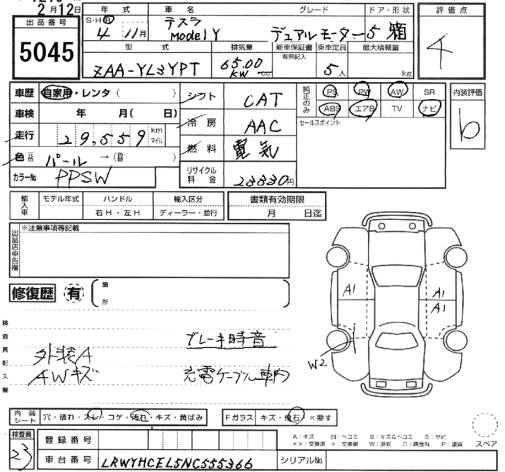 2月12日
出品番号
5045
年式 車名 グレード ドア・形状
S・H・R 4年 11月 テスラ ModelY デュアルモーター 5 箱
型式 排気量 新車保証書 乗車定員 最大積載量
有照記入
ZAA-YL3YPT 65.00 KW 5人 kg
評価点
4
車歴 自家用・レンタ( )
車検 年 月( 日)
走行 29,559 km マイル
色 パール →
カラーNo. PPSW
シフト CAT
冷房 AAC
燃料 電気
リサイクル料金 23830円
純正のみ PS PW AW SR
ABS エアB TV ナビ
セールスポイント
内装評価
b
輸入車 モデル年式 ハンドル 輸入区分
右H・左H ディーラー・並行
書類有効期限
月 日迄
出品店申告欄
※注意事項等記載
修復歴 有 箇所
検査員記入欄
ブレーキ時音
外装A
AWキズ
充電ケーブル車内
A1
A1
A1
W2
内装シート 穴・破れ・スレ・コゲ・汚れ・キズ・黄ばみ
Fガラス キズ・飛石・×要す
スペア
検査員
23
登録番号
車台番号 LRWYHCEL5NC555366
シリアルNo.
A:キズ